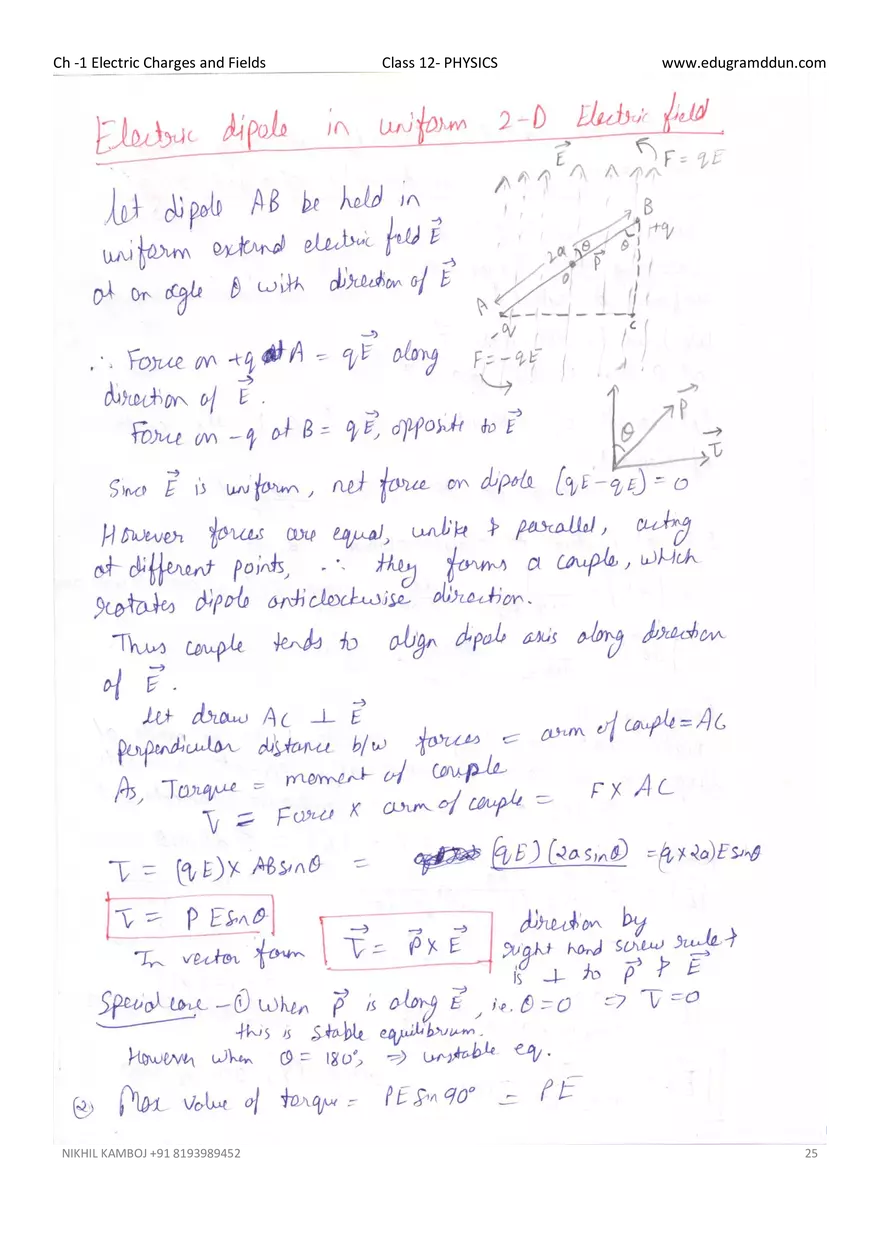 Ch -1 Electric Charges and Fields Class 12- PHYSICS www.edugramddun.com
Electric dipole in uniform 2-D Electric field
E→ F = qE
Let dipole AB be held in
uniform external electric field E→
at an agle θ with direction of E→
B
+q
2a θ θ
P→
O
A
-q
C
F = -qE
∴ Force on +q at A = qE→ along
direction of E→.
Force on -q at B = qE→, opposite to E→
θ P→
τ→
Since E→ is uniform, net force on dipole (qE-qE) = 0
However forces are equal, unlike & parallel, acting
at different points, ∴ they forms a couple, which
rotates dipole anticlockwise direction.
Thus couple tends to align dipole axis along direction
of E→.
Let draw AC ⊥ E→
perpendicular distance b/w forces = arm of couple = AC
As, Torque = moment of couple
τ = Force × arm of couple = F × AC
τ = (qE) × AB sinθ = (qE) (2a sinθ) = (q × 2a) E sinθ
τ = PE sinθ
In vector form τ→ = P→ × E→
direction by
right hand screw rule &
is ⊥ to P→ & E→
Special case - ① when P→ is along E→, i.e. θ = 0 ⇒ τ = 0
this is stable equilibrium.
However when θ = 180°, ⇒ unstable eq.
② Max value of torque = PE sin 90° = PE
NIKHIL KAMBOJ +91 8193989452 25